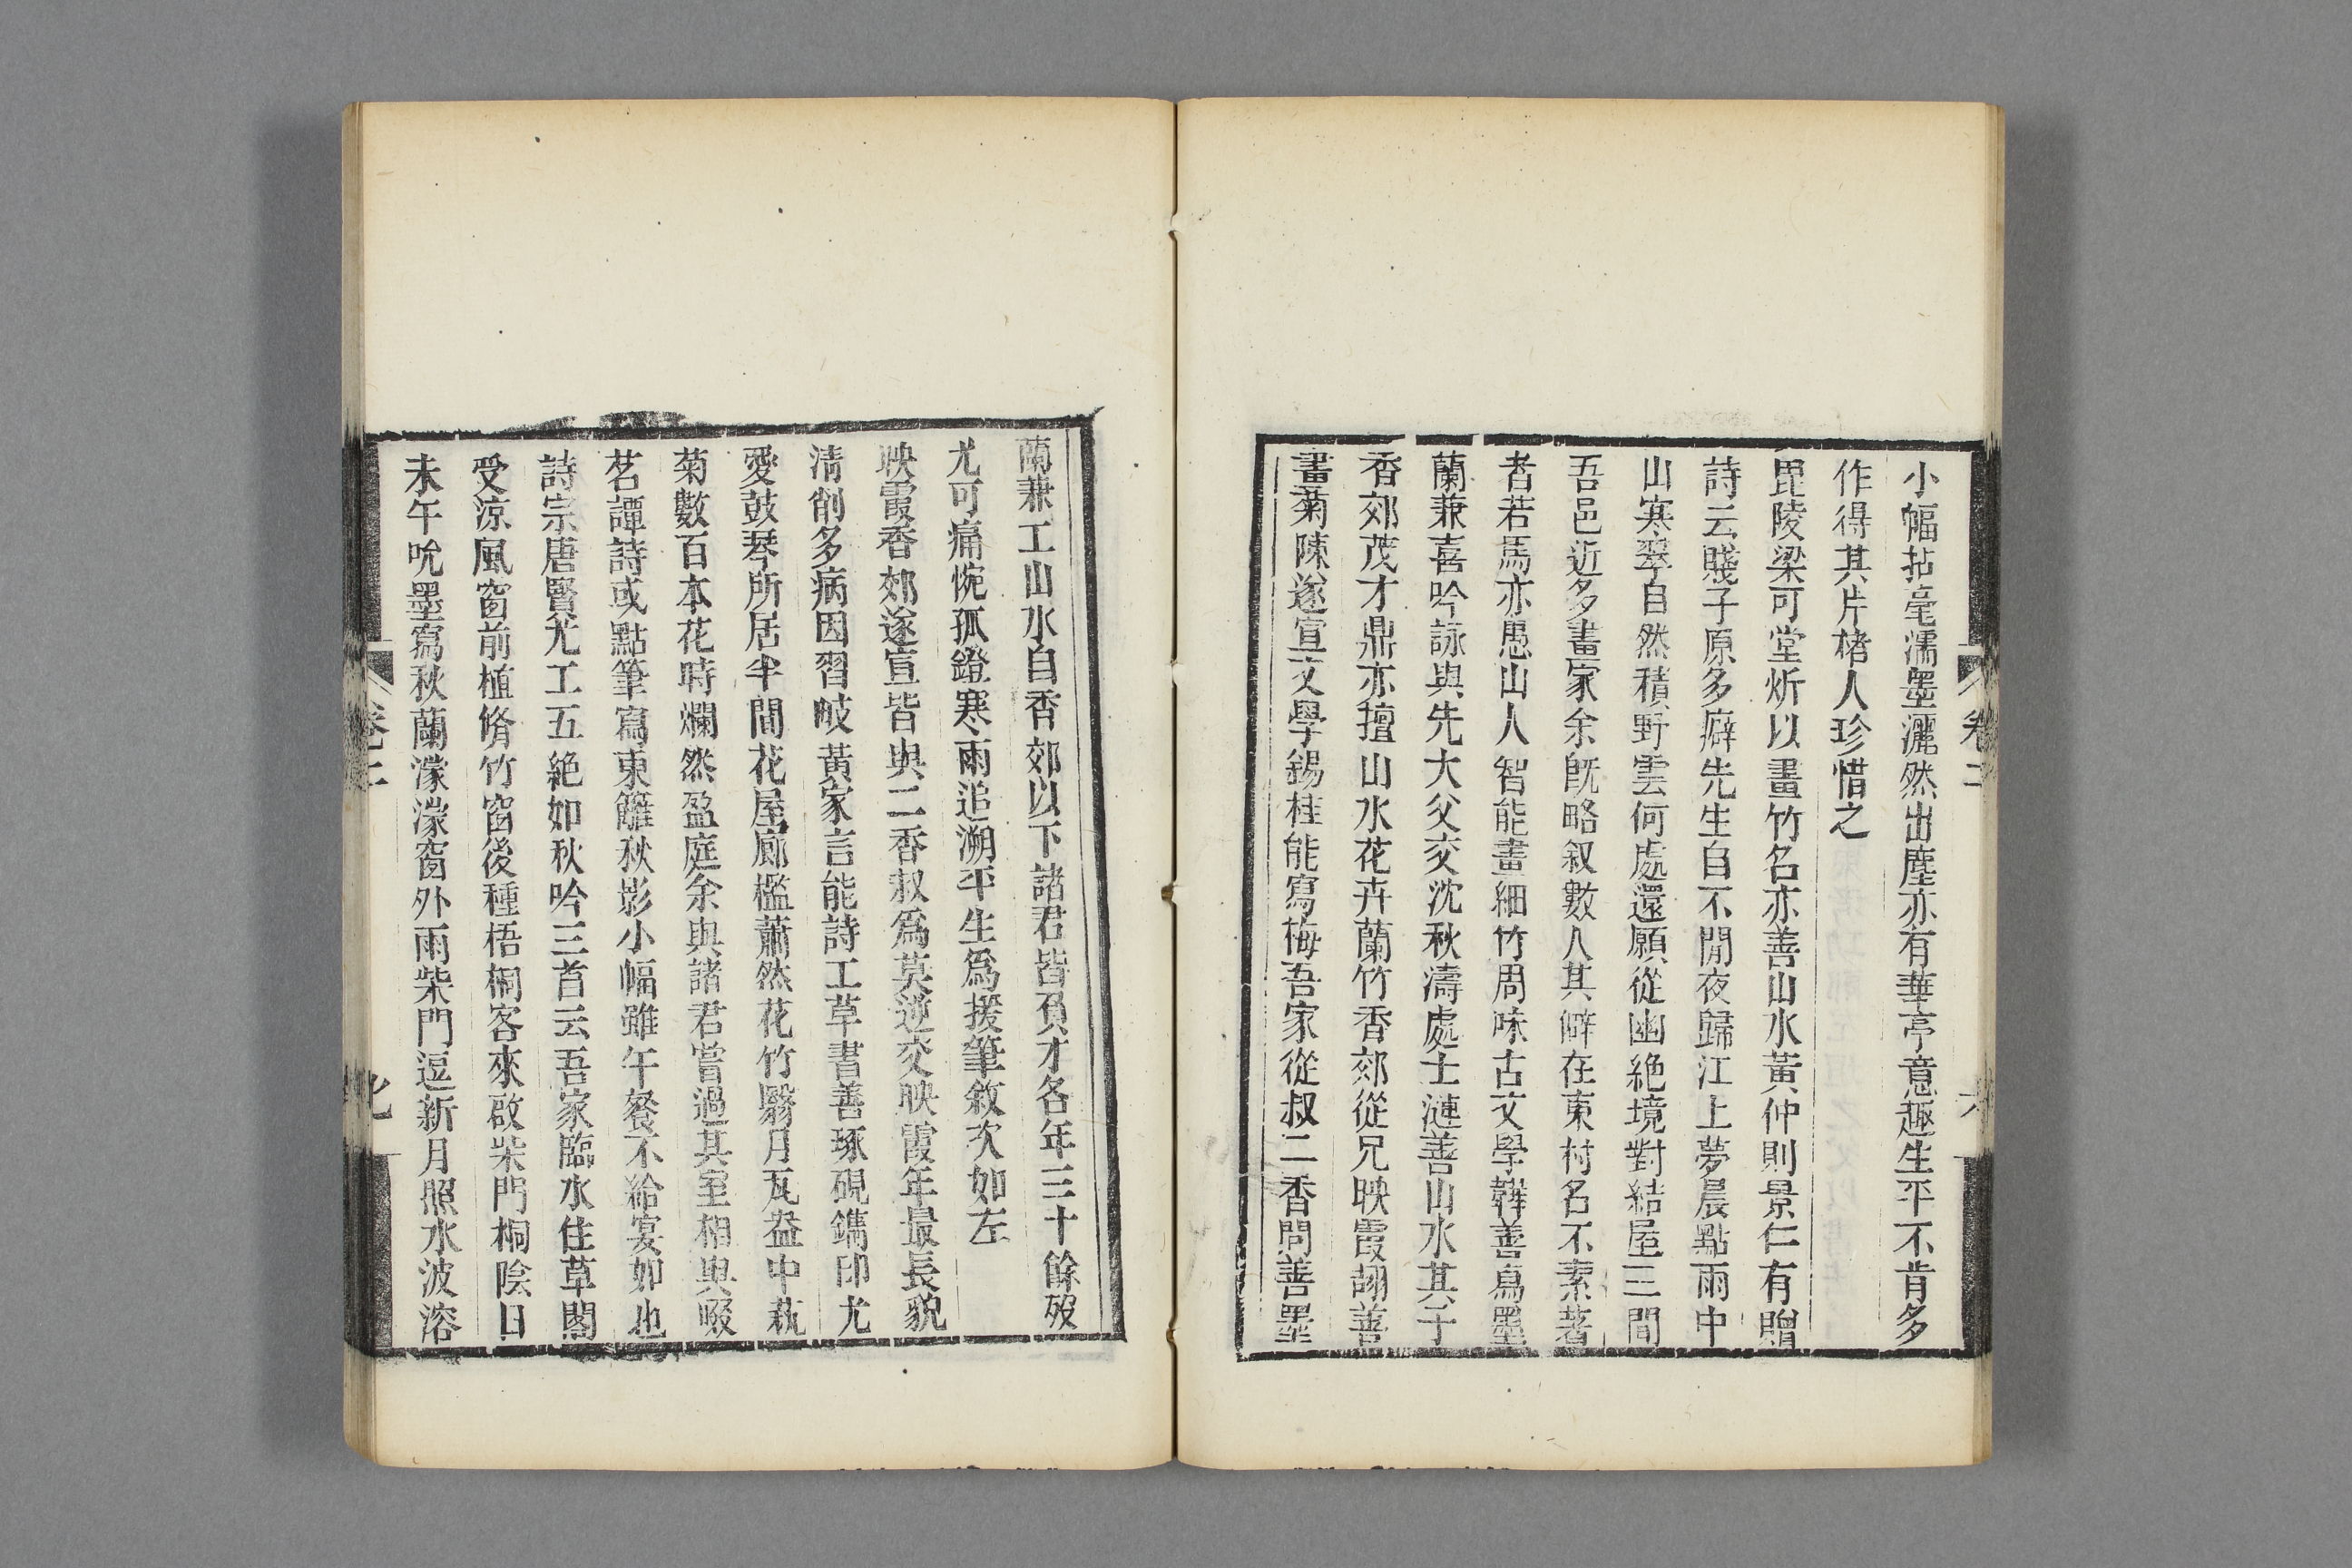 小幅拈毫濡墨灑然出塵亦有華亭意趣生平不肯多
作得其片楮人珍惜之
毘陵梁可堂炘以畫竹名亦善山水黃仲則景仁有贈
詩云賤子原多癖先生自不閒夜歸江上夢晨點雨中
山寒翠自然積野雲何處還願從幽絕境對結屋三間
吾邑近多畫家余旣略叙數人其僻在東村名不素著
者若馬亦愚山人智能畫細竹周味古文學韡善寫墨
蘭兼喜吟詠與先大父交沈秋濤處士漣善山水其子
香郊茂才鼎亦擅山水花卉蘭竹香郊從兄映霞翃善
畫菊陳遂宣文學錫桂能寫梅吾家從叔二香問善墨
卷二
六
蘭兼工山水自香郊以下諸君皆負才各年三十餘歿
尤可痛惋孤鐙寒雨追溯平生爲援筆敘次如左
映霞香郊遂宣皆與二香叔爲莫逆交映霞年最長貌
清削多病因習岐黃家言能詩工草書善琢硯鐫印尤
愛鼓琴所居半間花屋廊檻蕭然花竹翳月瓦盎中蓺
菊數百本花時爛然盈庭余與諸君嘗過其室相與啜
茗譚詩或點筆寫東籬秋影小幅雖午餐不給宴如也
詩宗唐賢尤工五絕如秋吟三首云吾家臨水住草閣
受涼風窗前植脩竹窗後種梧桐客來啟柴門桐陰日
未午吮墨寫秋蘭濛濛窗外雨柴門逗新月照水波溶
卷二